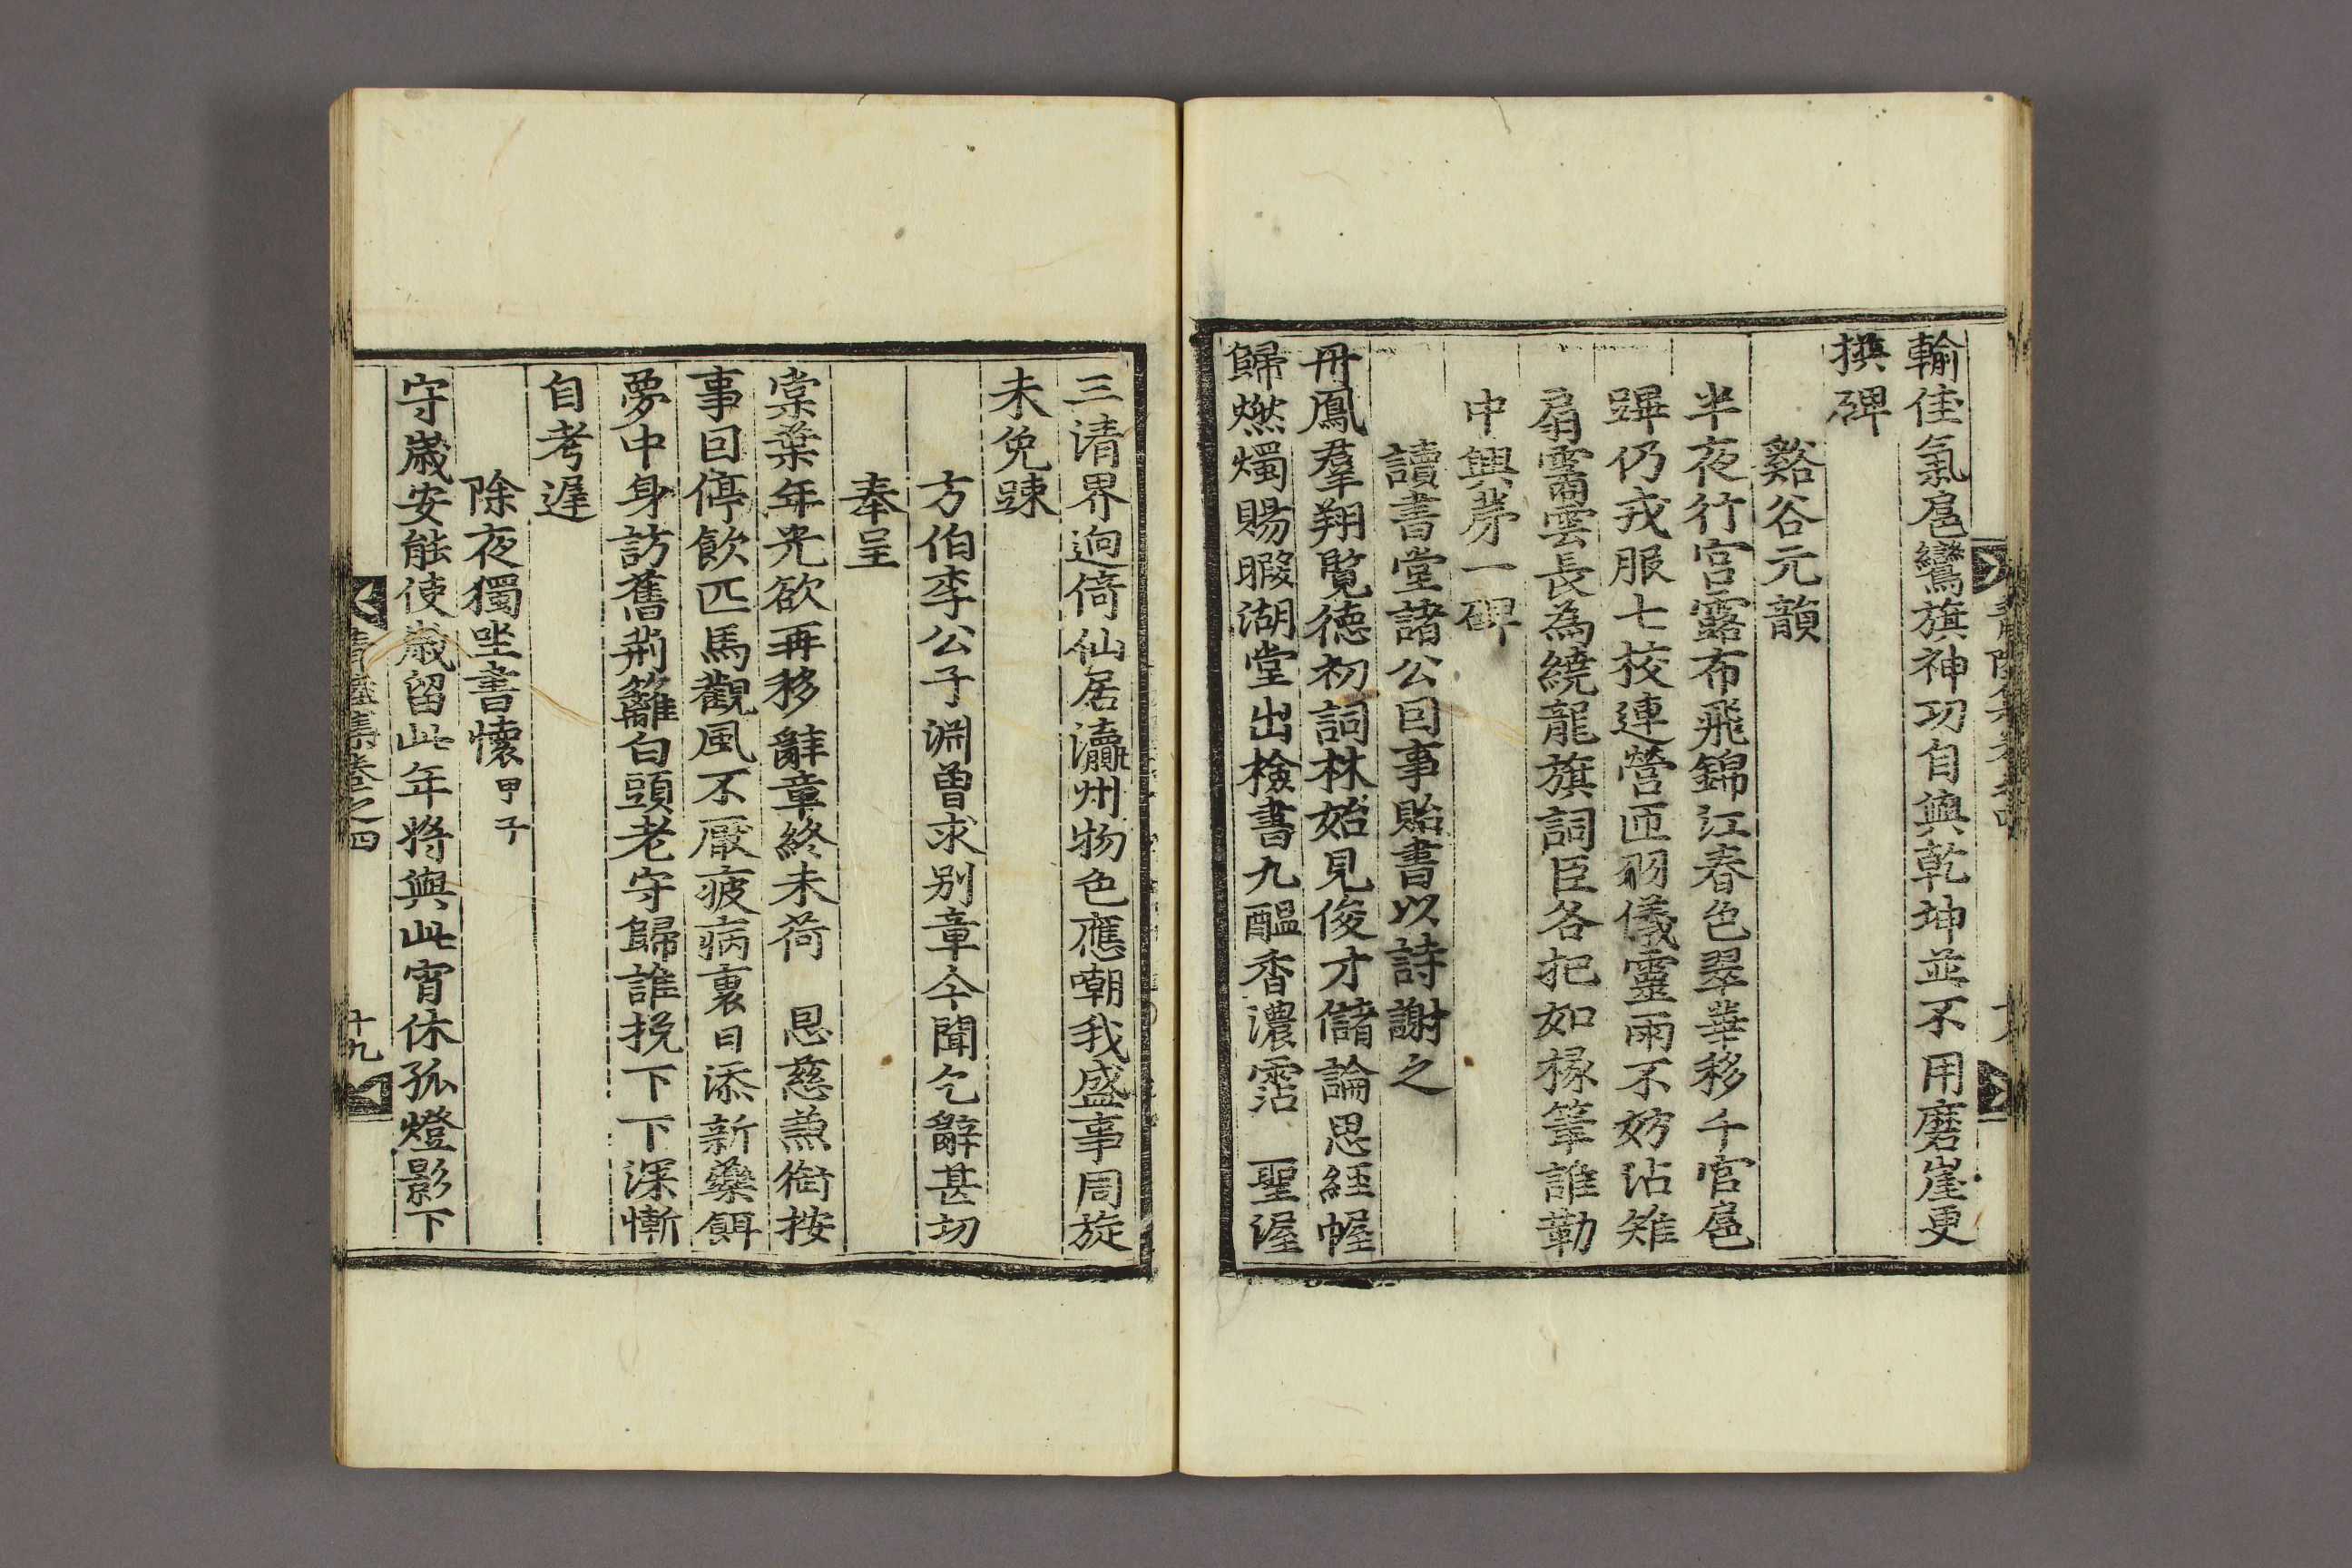 輸佳氣扈鸞旗神功自與乾坤並不用磨崖更
撰碑
谿谷元韻
半夜行宮露布飛錦江春色翠華移千官扈
蹕仍戎服七校連營匝羽儀靈雨不妨沾雉
扇需雲長為繞龍旗詞臣各把如椽筆誰勒
中興苐一碑
讀書堂堂諸公回事貽書以詩謝之
丹鳳羣翔覽德初詞林始見俊才儲論思經幄
歸燃燭賜暇湖堂出檢書九醞香濃霑　聖渥
三清界逈倚仙居瀛州物色應嘲我盛事周旋
未免踈
方伯李公子淵曾求別章今聞乞辭甚切
奉呈
棠葉年光欲再移辭章終未荷　恩慈兼銜按
事回停飲匹馬觀風不厭疲病裏日添新藥餌
夢中身訪舊荊籬白頭老守歸誰挽下下深慚
自考遲
除夜獨坐書懷甲子
守歲安能使歲留此年將與此宵休孤燈影下
集卷之四
十九